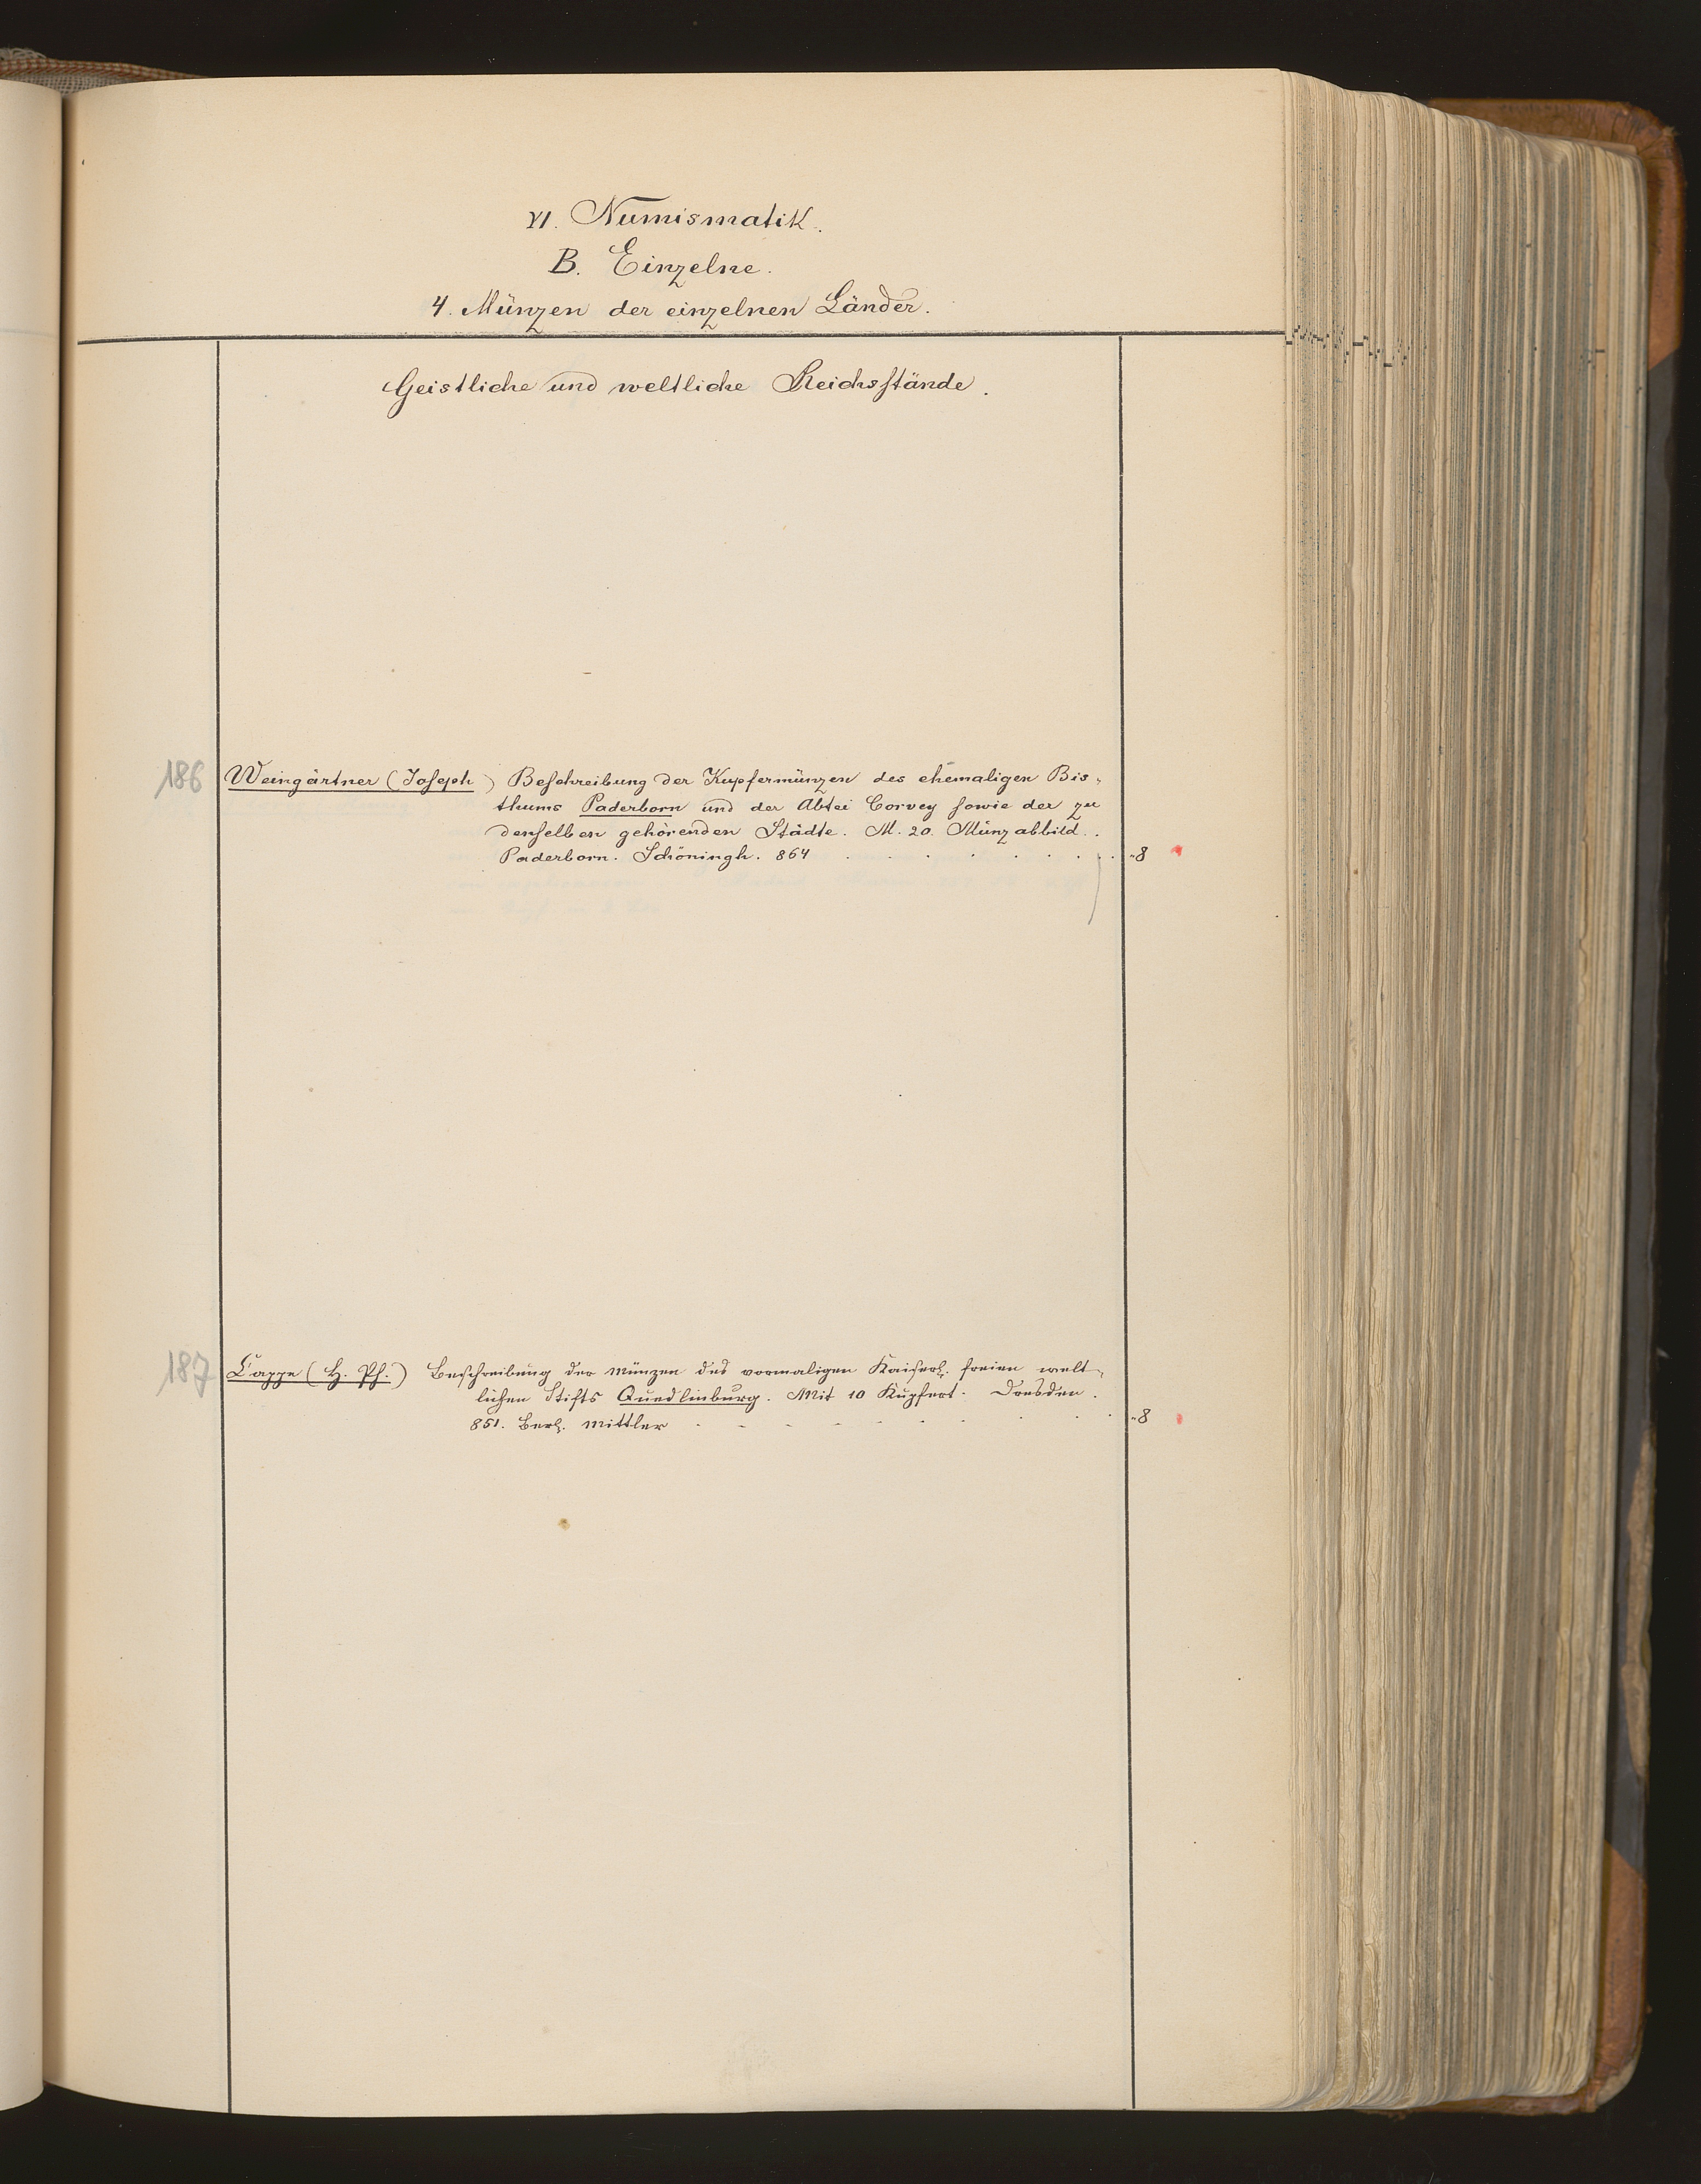 VI. Numismatik.
B. Einzelne.
4. Münzen der einzelnen Länder.
Geistliche und weltliche Reichsstände.
186 Weingärtner (Joseph) Beschreibung der Kupfermünzen des ehemaligen Bis-
thums Paderborn und der Abtei Corvey sowie der zu
denselben gehörenden Städte. M. 20. Münzabbild.
Paderborn. Schöningh. 864 . . . . . . . "8
187 Cappe (H. Ph.) Beschreibung der Münzen des vormaligen Kaiserl. freien welt-
lichen Stifts Quedlinburg. Mit 10 Kupfert. Dresden.
851. Berl. Mittler . . . . . . . . . "8